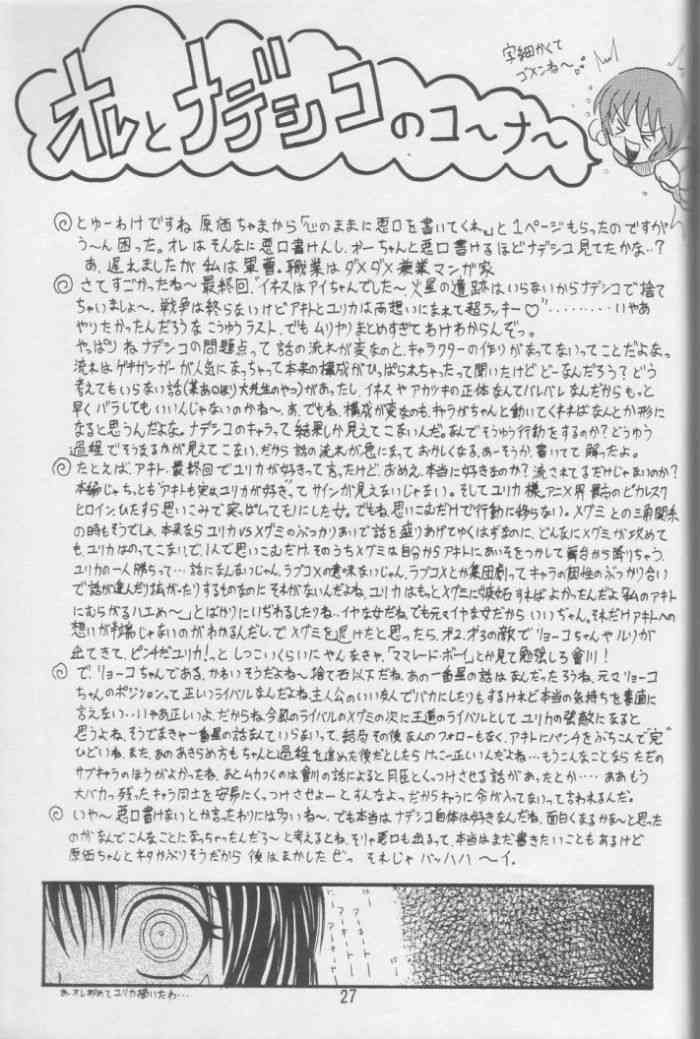 オレとナデシコのコ〜ナ〜
字細かくて
ゴメンね〜
とゆーわけですね 原価ちゃまから「心のままに悪口を書いてくれ」と1ページもらったのですが
う〜ん困った。オレはそんなに悪口書けんし、オーちゃんと悪口書けるほどナデシコ見てたかな‥?
あ、遅れましたが私は軍曹。職業はダメダメ兼業マンガ家
さてすごかったね〜最終回、"イネスはアイちゃんでした〜火星の遺跡はいらないからナデシコで捨て
ちゃいましょ〜、戦争は終らないけどアキトとユリカは両想いになれて超ラッキー♡"‥‥‥‥いやあ
やりたかったんだろうな こうゆうラスト、でもムリヤリまとめすぎてわけわからんぞっ。
やっぱりねナデシコの問題点って話の流れが変なのと、キャラクターの作りがあってないってことだよなっ
流れはゲキガンガーが人気になっちゃって本来の構成がひっぱられちゃったって聞いたけどどーなんだろう?どう
考えてもいらない話(某大先生のやつ)があったし、イネスやアカツキの正体なんてバレバレなんだからもっと
早くバラしてもいいんじゃないのかね〜あ、でもね、構成が変なのも、キャラがちゃんと動いてくれればなんとか形に
なると思うんだよな。ナデシコのキャラって結果しか見えてこないんだ。なんでそうゆう行動をするのか?どうゆう
過程でそうなるかが見えてこない、だから話の流れが急になっておかしくなる、あーそうか、書いてて解ったよ。
たとえば、アキト、最終回でユリカが好きって言ったけど、おめえ、本当に好きなのか?流されてるだけじゃないのか?
本編じゃちっとも"アキトも実はユリカが好き"ってサインが見えないじゃない。そしてユリカ様、アニメ界最高のピカレスク
ヒロイン、ひたすら思いこみで家ばしてモノにした女。でもね、思いこむだけで行動に移らない。メグミとの三角関係
の時もそうでしょ、本来ならユリカVSメグミのぶっかりあいで話を盛りあげてゆくはずなのに、どんなにメグミが攻めて
も、ユリカはのってこないで、1人で思いこむだけ、そのうちメグミは自分からアキトにあいそをつかして舞台から降りちゃう、
ユリカの一人勝ちって‥‥話になんないじゃん、ラブコメの意味ないじゃん、ラブコメとか集団劇ってキャラの個性のぶつかり合い
で話が進んだり拡がったりするものなのにそれがないんだよね、ユリカはもっとメグミに嫉妬すればよかったんだよ「私のアキト
にむらがるハエめ〜」とばかりにいぢわるしたりね‥イヤな女だね、でも元々イヤな女だからいいぢゃん。それだけアキトへの
想いが半端じゃないのがわかるんだし、で、メグミを退けたと思ったら、オ2、オ3の敵でリョーコちゃんやルリが
出てきて、ピンチだユリカ!っと しつこいくらいにやんなきゃ、「ママレード・ボーイ」とか見て勉強しろ會川!
で、リョーコちゃんである、かわいそうだよね〜捨て石以下だね、あの一番星の話はなんだったろうね、元々リョーコ
ちゃんのポジションって正しいライバルなんだよね、主人公のいい友人でバカにしたりもするけれど本当の気持ちを素直に
言えない‥‥いやあ正しいよ、だからね、今風のライバルのメグミの次に王道のライバルとしてユリカの強敵になると
思うよね、そうでまきゃー一番星の話なんていらないって、結局その後なんのフォローもなく、アキトにパンチをぶちこんで"完"
ひどいね、また、あのあきらめ方もちゃんと過程を進めた後だとしたらけっこー正しいんだよね‥‥もうこんなことならただの
サブキャラのほうがよかったね、あとムカつくのは會川の話によると月臣とくっつけさせる話があったとか‥‥ああもう
大バカっ残ったキャラ同士を安易にくっつけさせよーとすんなよっだからキャラに命が入ってないって言われるんだ。
いや〜悪口書けないとか言ったわりには多いね〜、でも本当はナデシコ自体は好きなんだね、面白くまるかな〜と思った
のがなんでこんなことになっちゃったんだろ〜と考えるとね、そりゃ悪口も出るって、本当はまだ書きたいこともあるけど
原価ちゃんとネタかぶりそうだから後はまかしたゼっ それじゃ バッハハ〜イ。
あ、オレ初めてユリカ描いたわ‥‥
27